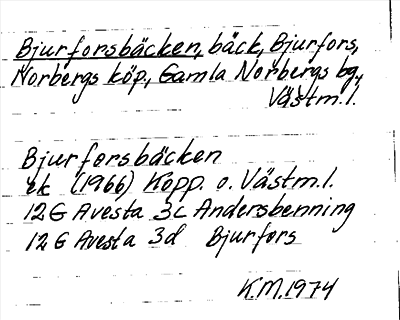 Bjurforsbäcken, bäck, Bjurfors,
Norbergs köp., Gamla Norbergs bg.,
Västm.l.
Bjurforsbäcken
ek (1966) Kopp. o. Västm.l.
12G Avesta 3c Andersbenning
12G Avesta 3d Bjurfors
K.M.1974